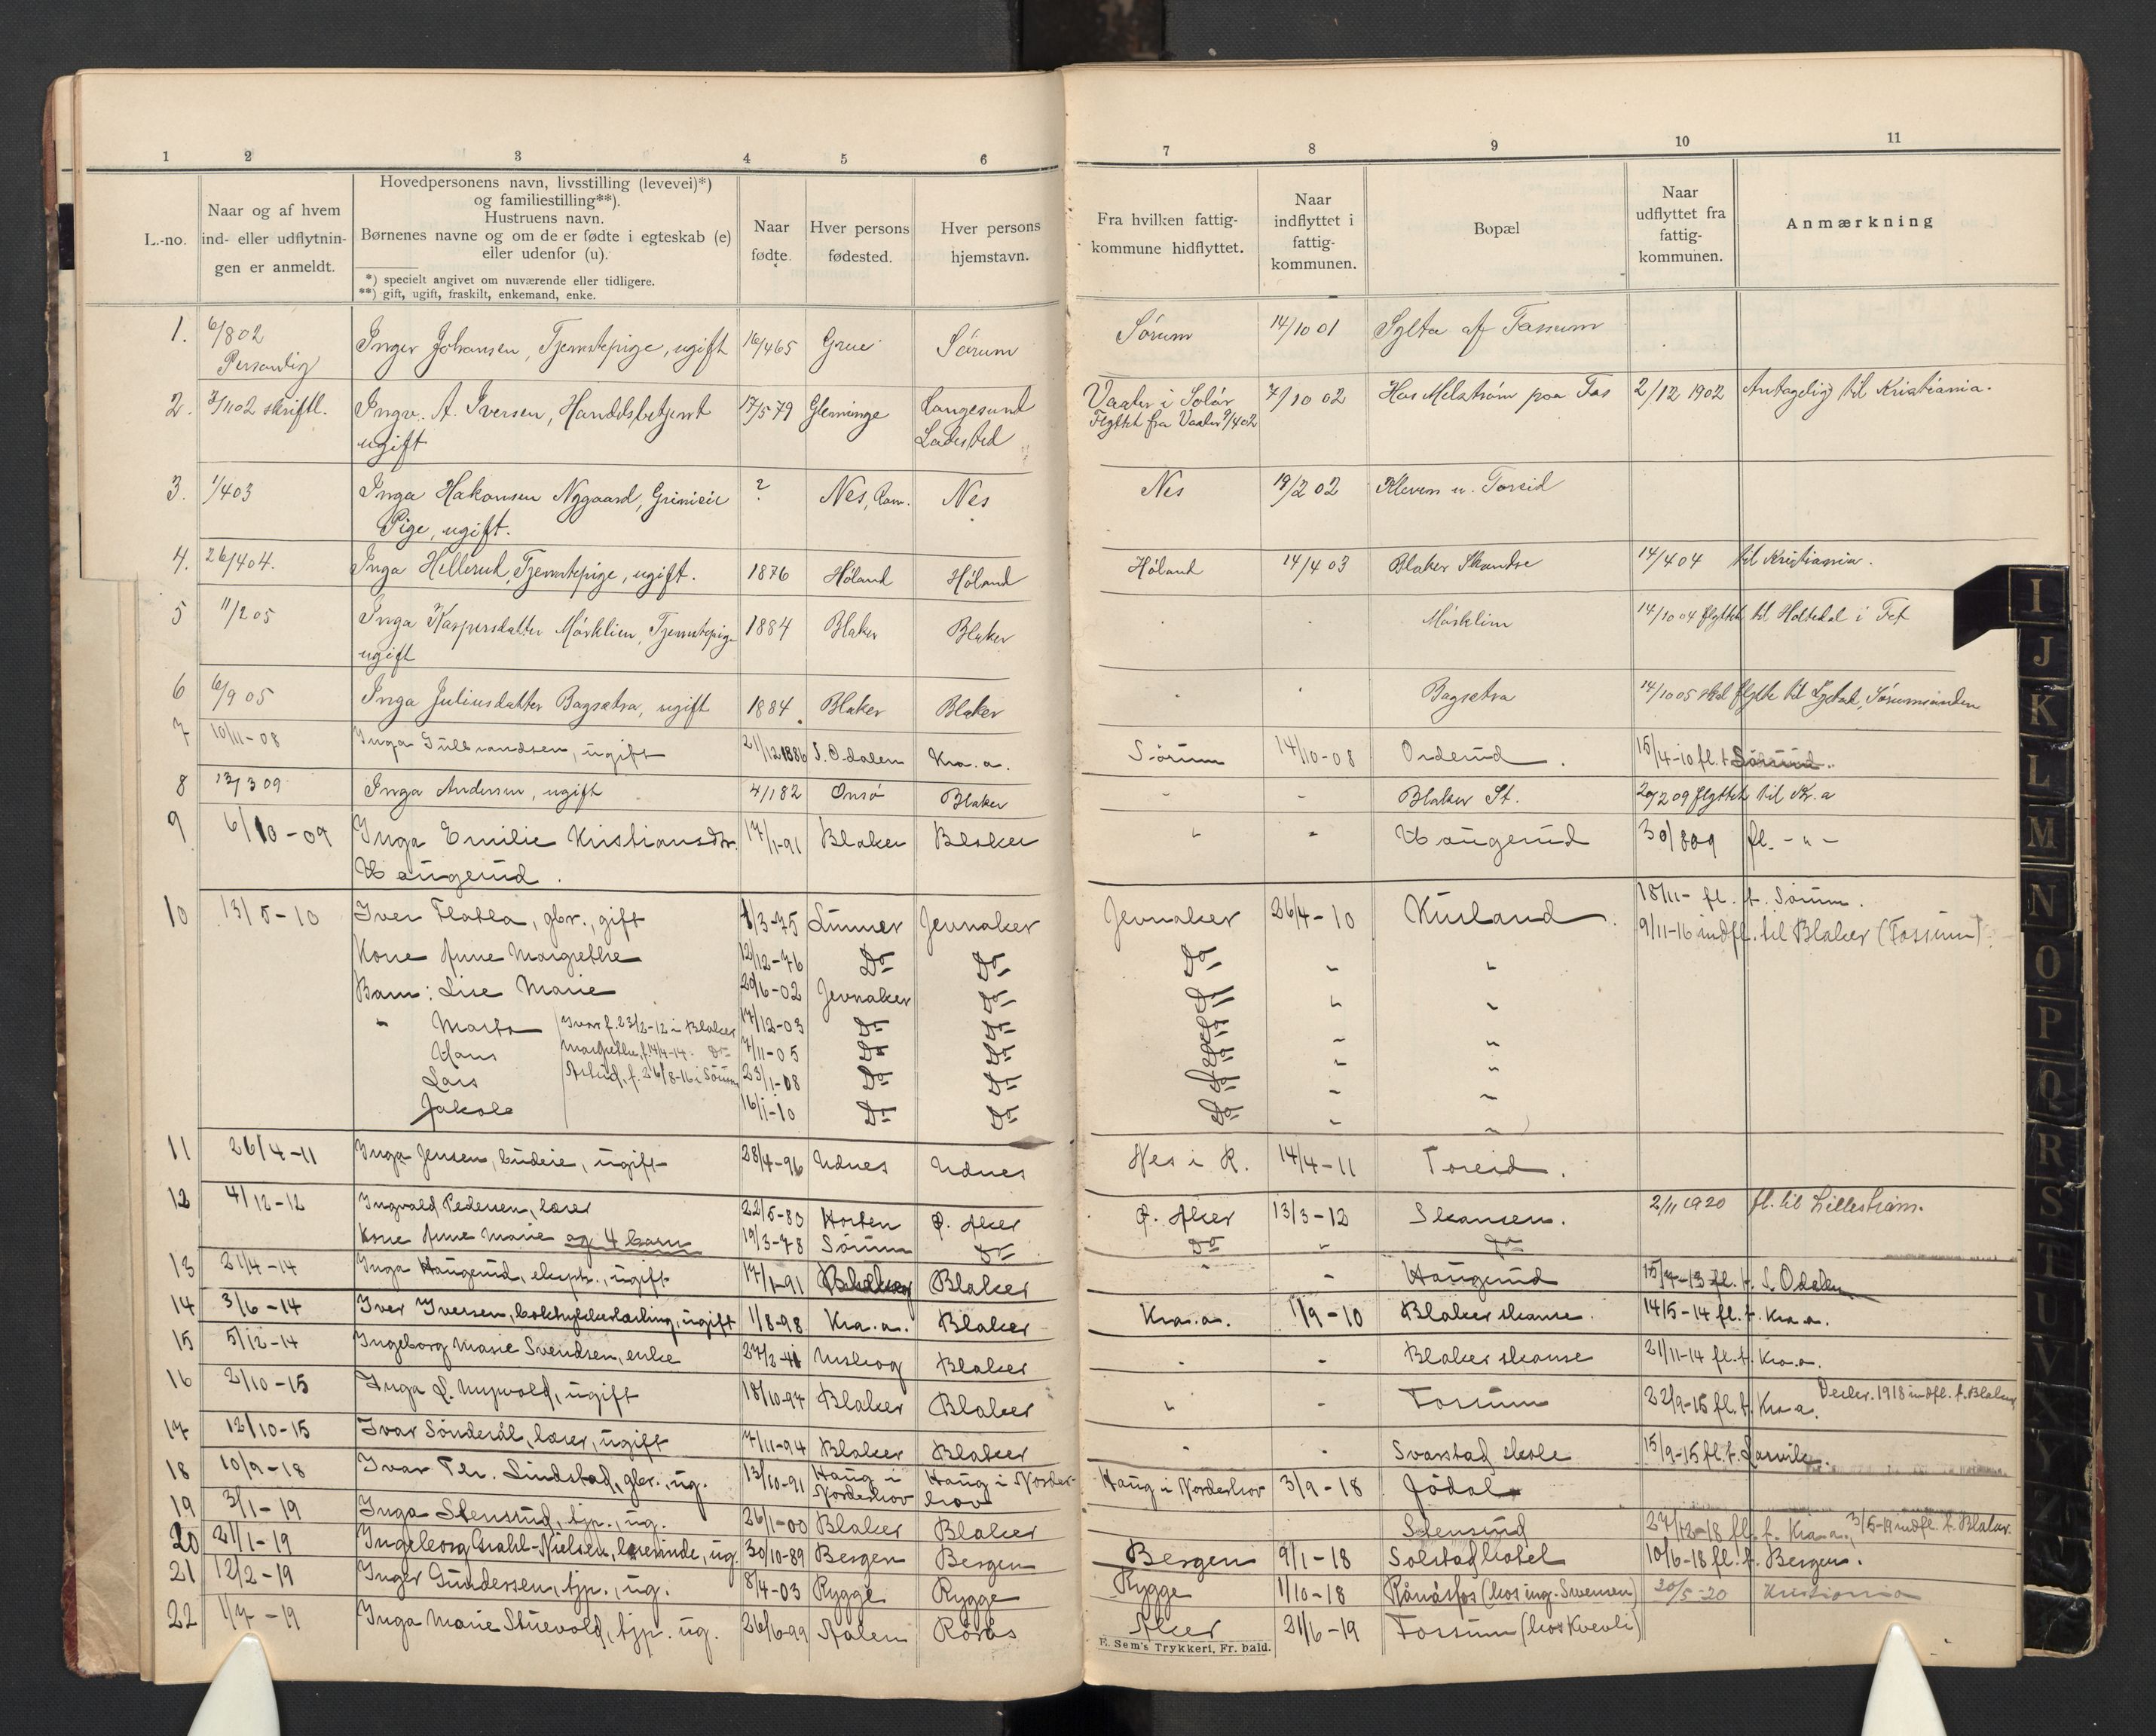 1 2 3 4 5 6 7 8 9 10 11
L.-no.
Naar og af hvem
ind- eller udflytnin-
gen er anmeldt.
Hovedpersonens navn, livsstilling (levevei)*)
og familiestilling**).
Hustruens navn.
Børnenes navne og om de er fødte i egteskab (e)
eller udenfor (u).
*) specielt angivet om nuværende eller tidligere.
**) gift, ugift, fraskilt, enkemand, enke.
Naar
fødte.
Hver persons
fødested.
Hver persons
hjemstavn.
Fra hvilken fattig-
kommune hidflyttet.
Naar
indflyttet i
fattig-
kommunen.
Bopæl
Naar
udflyttet fra
fattig-
kommunen.
Anmærkning
1. 6/8 02 Inger Johansen, Tjenestepige, ugift 16/4 65 Grue Sørum Sørum 14/10 01 Sylta af Fassum
Personlig
2. 3/11 02 skriftl. Ingv. A. Iversen, Handelsbetjent 17/5 79 Glemminge Langesund Vaaler i Solør 7/10 02 Hos Melstrøm paa Fos 2/12 1902 Antagelig til Kristiania.
ugift Ladested Flyttet fra Vaaler 9/4 02
3. 1/4 03 Inga Hakonsen Nygaard, ? Nes, Rom. Nes Nes 19/2 02 Kleven u. Toreid
Pige, ugift.
4. 26/4 04. Inga Hellerud, Tjenestepige, ugift. 1876 Høland Høland Høland 14/4 03 Blaker Skandse 14/4 04 til Kristiania.
5 11/2 05 Inga Kaspersdatter Mørklien, Tjenestepige 1884 Blaker Blaker Mørklien 14/10 04 flyttet til Holtedal i Fet
ugift
6 6/9 05 Inga Juliusdatter Bagsætra, ugift 1884 Blaker Blaker Bagsætra 14/10 05 skal flytte til Sørumsanden
7 10/11-08 Inga Gulbrandsen, ugift 21/12 1886 S. Odalen Kra.a. Sørum 14/10-08 Orderud. 15/4-10 fl. t. Sørum.
8 13/3 09 Inga Andersen, ugift 4/1 82 Onsø Blaker " " Blaker St. 20/2 09 flyttet til Kr.a
9 6/10-09 Inga Emilie Kristiansdtr. 17/1-91 Blaker Blaker " " Haugerud 30/8 09 fl. - " -
Haugerud.
10 13/5-10 Iver Flatla, gbr., gift 1/3-75 Lunner Jevnaker Jevnaker 26/4-10 Kurland. 18/11- fl. t. Sørum.
9/11-16 indfl. til Blaker (Fossum).
Kone Anne Margrethe 12/12-76 Do Do Do " "
Barn: Lise Marie 20/6-02 Jevnaker Do Do " "
" Marta Ivar f. 23/2-12 i Blaker 17/12-03 Do Do Do " "
Hans Margrethe, f. 14/4-14. Do 7/11-05 Do Do Do " "
Lars Astrid, f. 26/8-16 i Sørum 23/1-08 Do Do Do " "
Jakob 16/1-10 Do Do Do " "
11 26/4-11 Inga Jensen, budeie, ugift 28/4-96 Udnes Udnes Nes i R. 14/4-11 Toreid.
12 4/12-12 Ingvald Pedersen, lærer 22/5-80 Horten Ø. Aker Ø. Aker 13/3-12 Skansen. 2/11 1920 fl. til Lillestrøm.
Kone Anne Marie og 4 barn 19/3-78 Sørum Do Do " Do
13 21/4-14 Inga Haugerud, eksp., ugift 17/1-91 Blaker Blaker " " Haugerud 15/4-13 fl. t. S. Odalen
14 3/6-14 Iver Iversen, boktrykkerlærling, ugift 1/8-98 Kra.a. Blaker Kra.a. 1/9-10 Blaker skanse. 14/5-14 fl. t. Kra.a.
15 5/12-14 Ingeborg Marie Svendsen, enke 27/2-41 Urskog Blaker " " Blaker skanse 21/11-14 fl. t. Kra.a.
16 2/10-15 Inga L. Nyvold, ugift 18/10-97 Blaker Blaker " " Fossum 22/9-15 fl. t. Kra.a. Decbr. 1918 indfl. t. Blaker
17 12/10-15 Ivar Sønderål, lærer, ugift 7/11-94 Blaker Blaker " " Svarstad skole 15/9-15 fl. t. Larvik.
18 10/9-18 Ivar Th. Lindstad, gbr., ug. 13/10-91 Haug i Norderhov Haug i Norderhov Haug i Norderhov 3/9-18 Jødal
19 3/1-19 Inga Stensrud, tjp., ug. 26/1-00 Blaker Blaker Stensrud 27/12-18 fl. t. Kra.a., 3/5-19 indfl. t. Blaker.
20 21/1-19 Ingeborg Grahl-Nielsen, lærerinde, ug. 30/10-89 Bergen Bergen Bergen 9/1-18 Solstad hotel 10/6-18 fl. t. Bergen.
21 12/2-19 Inger Gundersen, tjp., ug. 8/4-03 Rygge Rygge Rygge 1/10-18 Rånåsfos (hos ing. Svensen) 20/5-20 Kristiania
22 1/7-19 Inga Marie Stuevold, tjp. ug. 26/6-99 Aalen Røros Aker 21/6-19 Fossum (hos Kvevli)
E. Sem's Trykkeri, Fr. hald.
I
J
K
L
M
N
O
P
Q
R
S
T
U
V
Y
Z